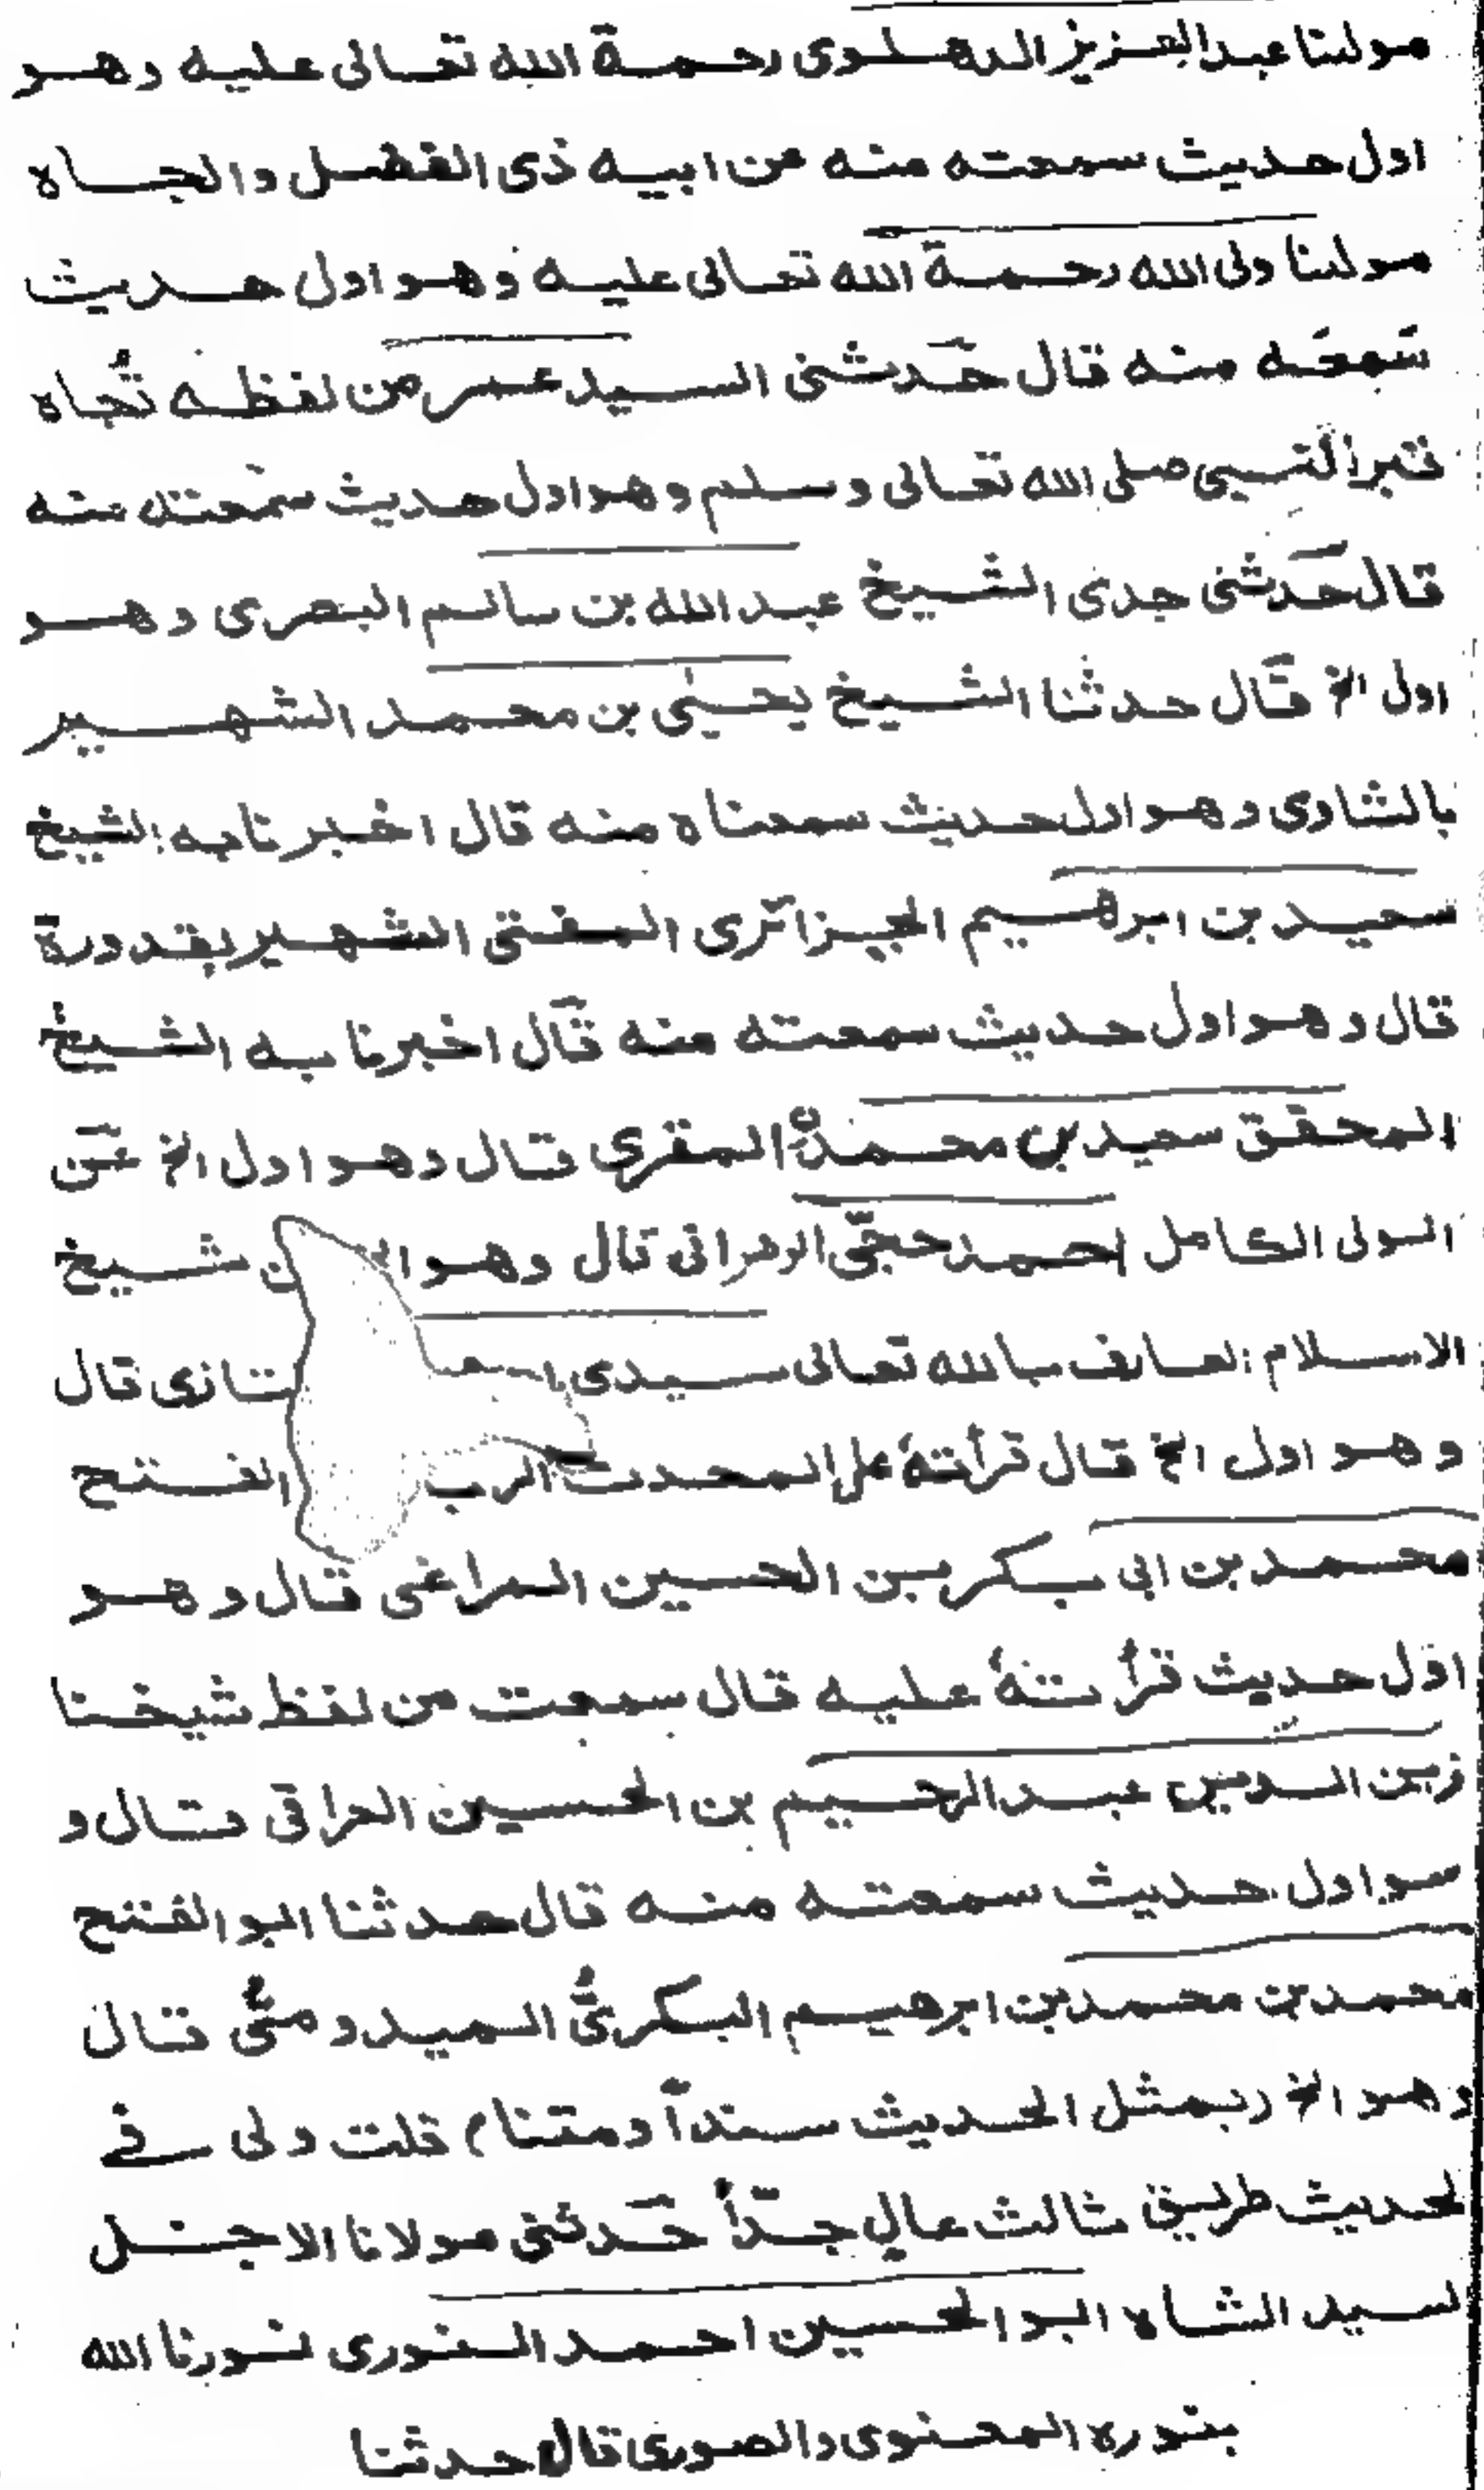 مولٰنا عبد العزيز الدهلوى رحمة الله تعالى عليه وهو
اول حديث سمعته منه عن ابيه ذى الفضل والجاه
مولٰنا ولى الله رحمة الله تعالى عليه وهو اول حديث
سَمِعَه منه قال حَدثنى السيد عمر من لفظه تُجاه
قبر النبى صلى الله تعالى وسلم وهو اول حديث سَمعته منه
قال حَدثنى جدى الشيخ عبد الله بن سالم البصرى وهو
اول الخ قال حدثنا الشيخ يحيٰى بن محمد الشهير
بالشاوى وهو اول حديث سمعناه منه قال اخبرنا به الشيخ
سعيد بن ابرهيم الجزائرى المفتى الشهير بقدورة
قال وهو اول حديث سمعته منه قال اخبرنا به الشيخ
المحقق سعيد بن محمدن المقرى قال وهو اول الخ عن
الولى الكامل احمد حجّى الوهرانى قال وهو الخ شيخ
الاسلام العارف بالله تعالى سيدى تازى قال
وهو اول الخ قال قرأته على المحدث الرب الفتح
محمد بن ابى بكر بن الحسين المراغى قال وهو
اول حديث قرأتهٗ عليه قال سمعت من لفظ شيخنا
زين الدين عبد الرحيم بن الحسين العراقى قال و
هو اول حديث سمعته منه قال حدثنا ابو الفتح
محمد بن محمد بن ابرهيم البكرىُّ الميدومىُّ قال
وهو الخ بمثل الحديث سنداً ومتنا م قلت ولى فى
لحديث طريق ثالث عالٍ جدّاً حَدثنى مولانا الاجل
لسيد الشاه ابو الحسين احمد النورى نورنا الله
بنوره المعنوى والصورى قال حدثنا